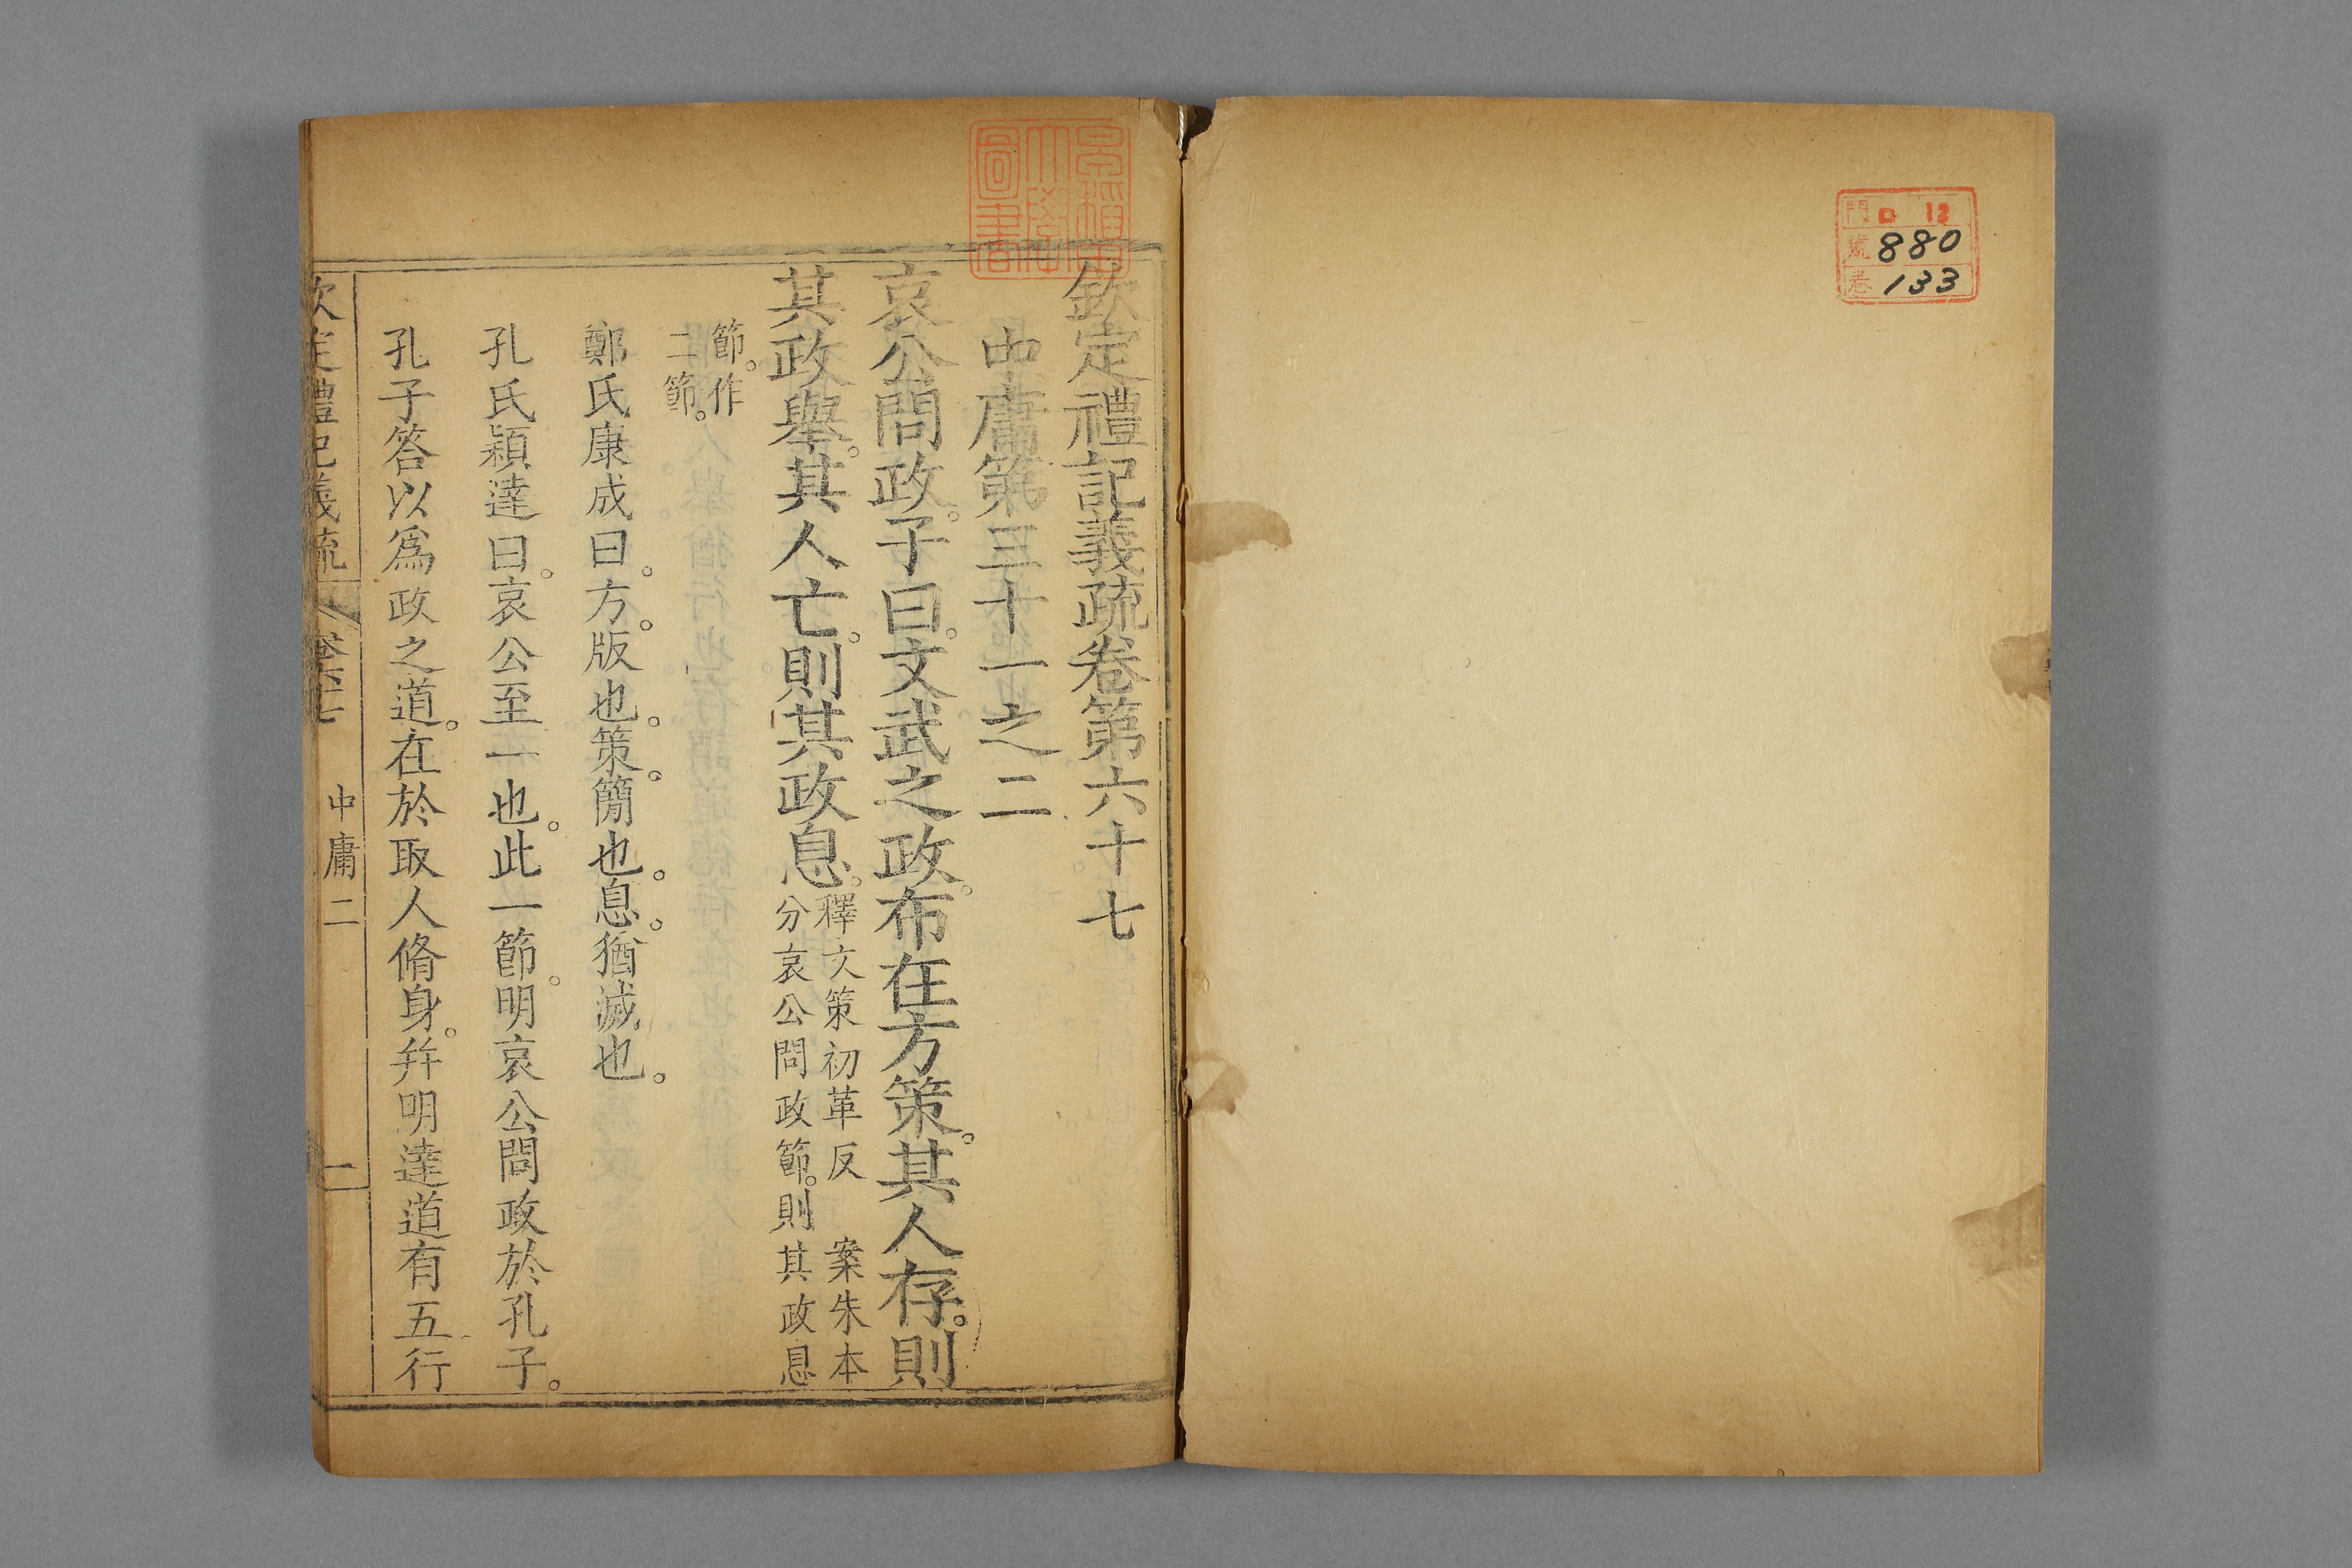 門 ロ 12
號 880
卷 133
早稲田
大學
圖書
欽定禮記義疏卷第六十七
中庸第三十一之二
哀公問政。子曰。文武之政。布在方策。其人存。則
其政舉。其人亡。則其政息。釋文策初革反 案朱本
分哀公問政節。則其政息
節。作
二節。
鄭氏康成曰。方。版也。策。簡也。息。猶滅也。
孔氏穎達曰。哀公至一也。此一節。明哀公問政於孔子。
孔子答以爲政之道。在於取人脩身。幷明達道有五行
欽定禮記義疏 卷六十七 中庸二 一